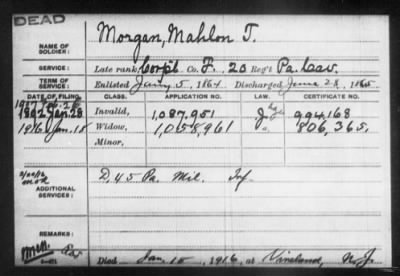 DEAD
NAME OF SOLDIER: Morgan, Mahlon T.
SERVICE: Late rank, Corp'l Co. F, 20 Reg't Pa. Cav.
TERM OF SERVICE: Enlisted 5, 1864 Discharged June 1865
DATE OF FILING. CLASS. APPLICATION NO. LAW. CERTIFICATE NO.
Invalid, 1,087,951 994,168
1916 Jan. 18 Widow, 1,055,961 806,365
Minor,
ADDITIONAL SERVICES: D, 45 Pa. Mil. Inf
REMARKS:
Died Jan. 15, 1916, at Vineland, N. J.